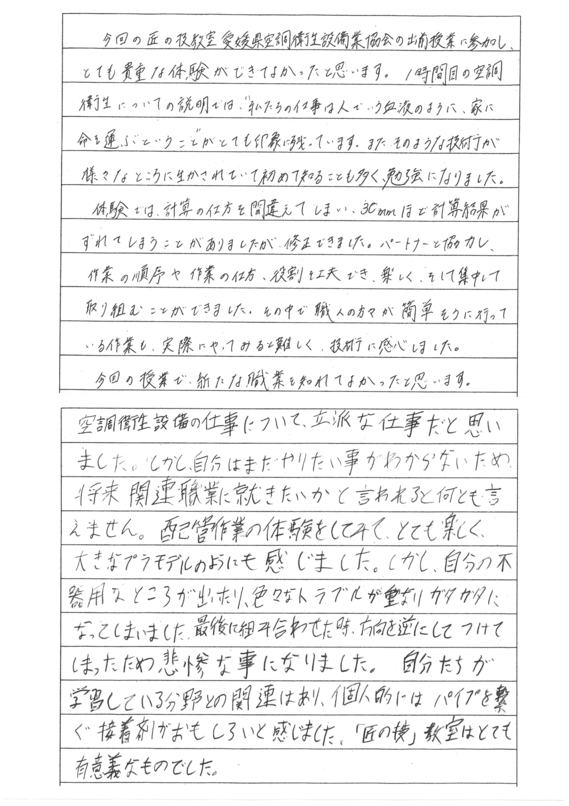 今回の匠の技教室愛媛県空調衛生設備業協会の出前授業に参加し、
とても貴重な体験ができてよかったと思います。1時間目の空調
衛生についての説明では、"私たちの仕事は人でいう血液のように、家に
命を運ぶということ"がとても印象に残っています。またそのような技術が
様々なところに生かされていて初めて知ることも多く、勉強になりました。
体験では、計算の仕方を間違えてしまい、30mmほど計算結果が
ずれてしまうことがありましたが、修正できました。パートナーと協力し、
作業の順序や作業の仕方、役割を工夫でき、楽しく、そして集中して
取り組むことができました。その中で職人の方々が簡単そうに行って
いる作業も、実際にやってみると難しく、技術に感心しました。
今回の授業で、新たな職業を知れてよかったと思います。
空調衛生設備の仕事について、立派な仕事だと思い
ました。しかし、自分はまだやりたい事がわからないため、
将来関連職業に就きたいかと言われると何とも言
えません。配管作業の体験をしてみて、とても楽しく、
大きなプラモデルのようにも感じました。しかし、自分の不
器用なところが出たり、色々なトラブルが重なりガタガタに
なってしまいました。最後に組み合わせた時、方向を逆にしてつけて
しまったため悲惨な事になりました。自分たちが
学習している分野との関連はあり、個人的にはパイプを繋
ぐ接着剤がおもしろいと感じました。「匠の技」教室はとても
有意義なものでした。